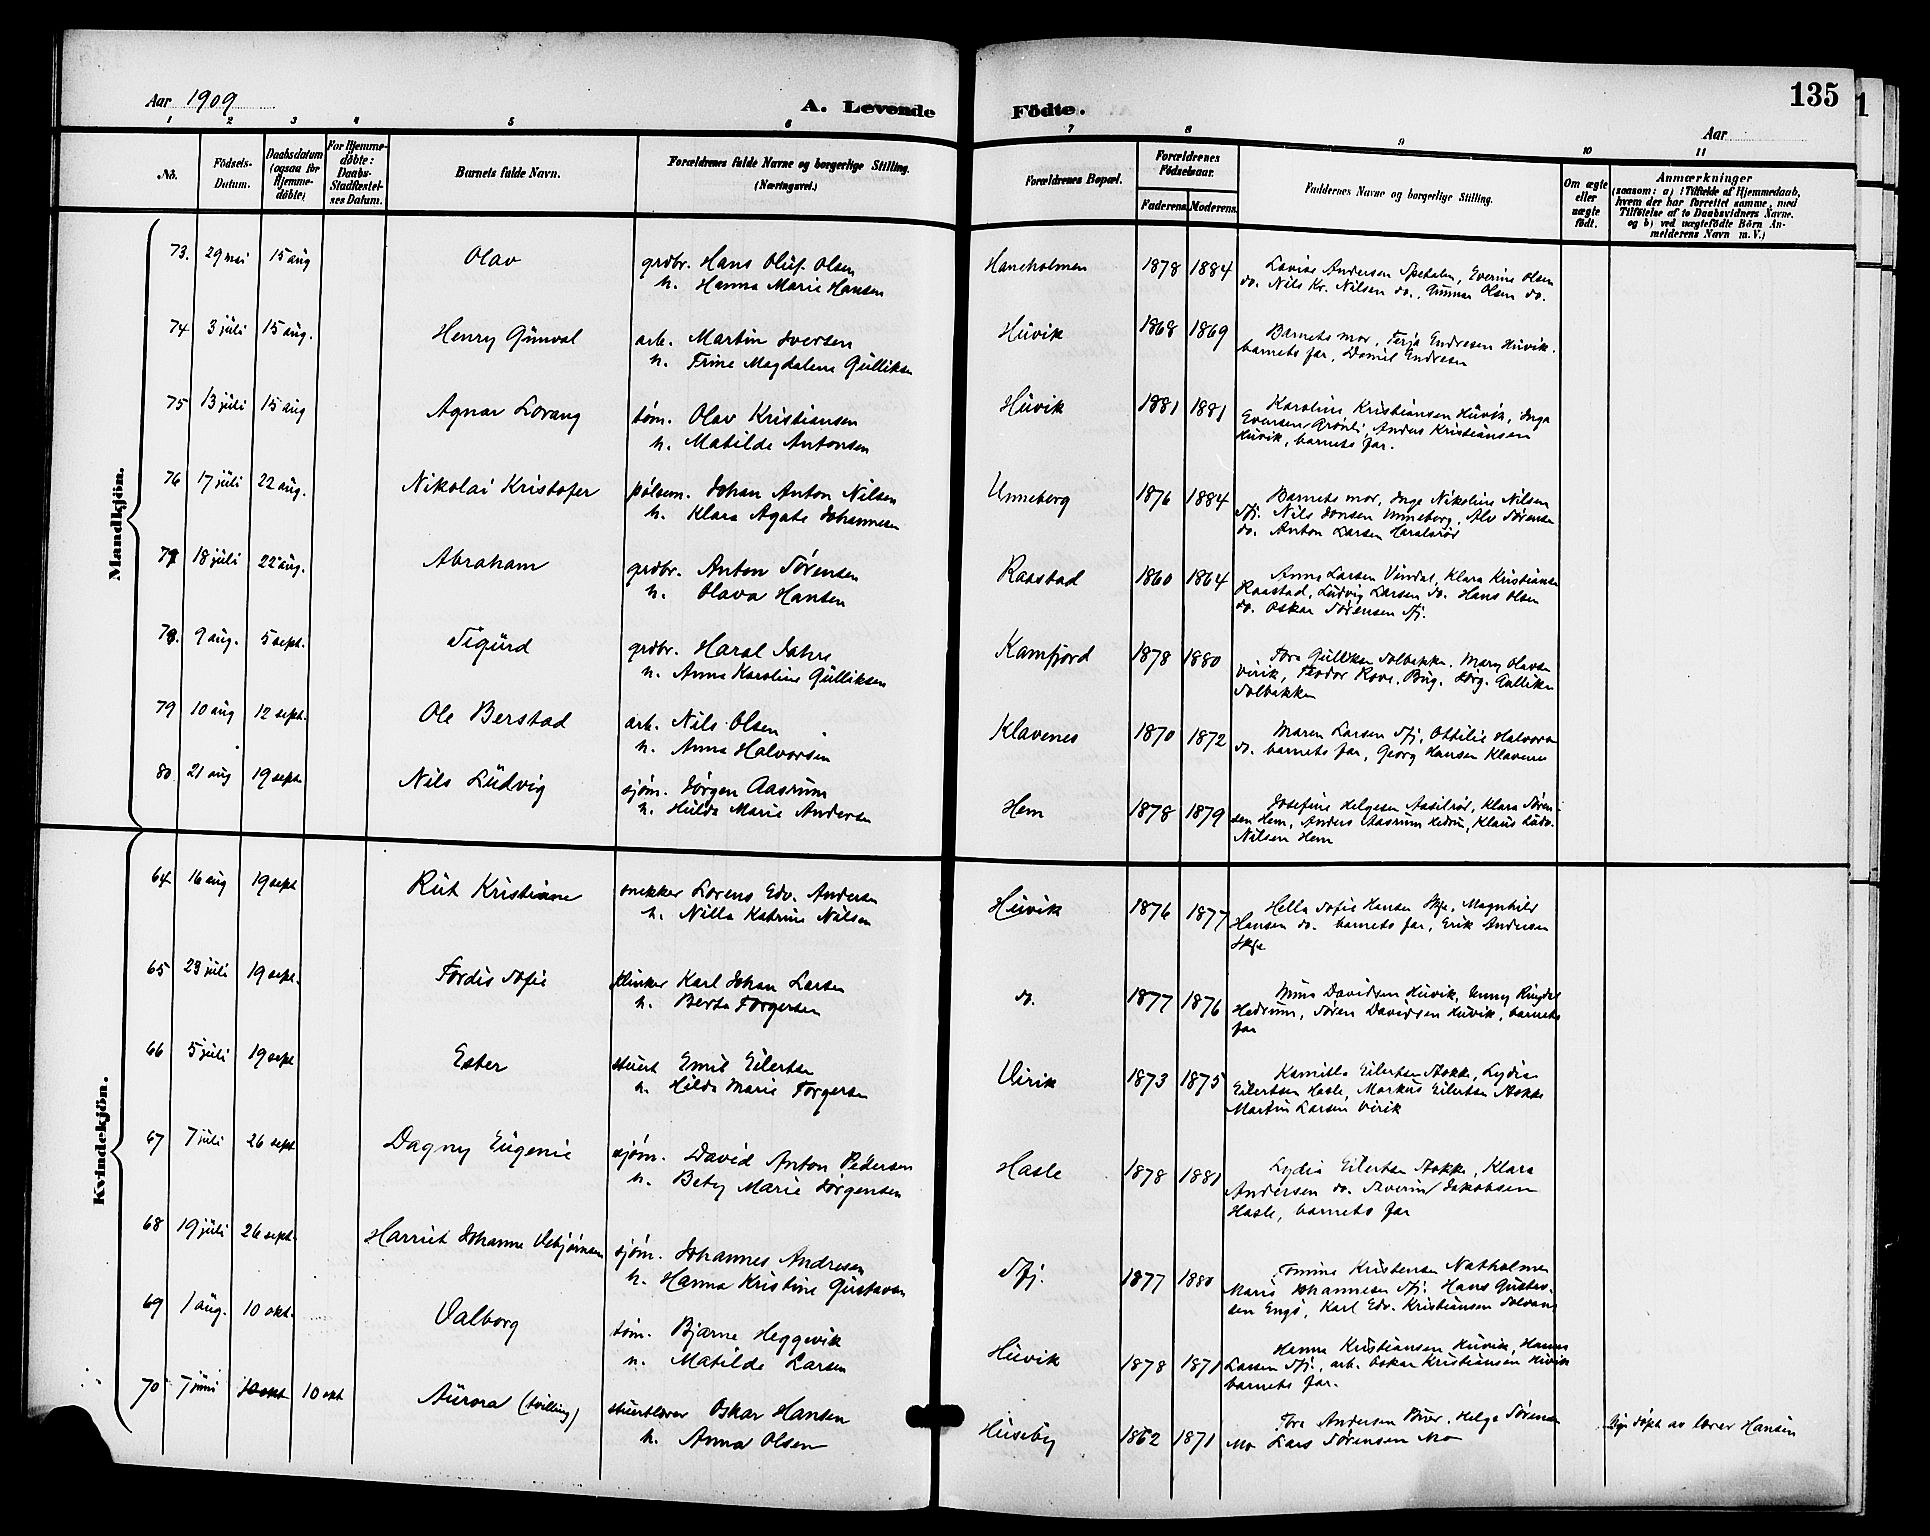 135
Aar 1909
A. Levende
Födte.
Aar
1 2 3 4 5 6 7 8 9 10 11
No.
Födsels-
Datum.
Daabsdatum
(ogsaa for
Hjemme-
döbte)
For Hjemme-
döbte:
Daabs-
Stadfæstel-
ses Datum.
Barnets fulde Navn.
Forældrenes fulde Navne og borgerlige Stilling.
(Næringsvei.)
Forældrenes Bopæl.
Forældrenes
Födselsaar.
Faderens. Moderens.
Faddernes Navne og borgerlige Stilling.
Om ægte
eller
uægte
födt.
Anmærkninger
(saasom: a) i Tilfælde af Hjemmedaab,
hvem der har forrettet samme, med
Tilföielse af to Daabsvidners Navne.
og b) ved uægtefödte Börn An-
melderens Navn m. V.)
Mandkjön.
73. 29 mai 15 aug Olav grdbr. Hans Oluf Olsen Haneholmen 1878 1884 Lovise Andersen Spetalen, Everine Olsen
h. Hanna Marie Hansen do. Nils Kr. Nilsen do., Gunnar Olsen do.
74 3 juli 15 aug. Henry Gunval arb. Martin Iversen Huvik 1868 1869 Barnets mor, Terje Endresen Huvik.
h. Trine Magdalene Gulliksen barnets far, Daniel Endresen
75 13 juli 15 aug Agnar Lorang töm. Olav Kristiansen Huvik 1881 1881 Karoline Kristiansen Huvik, Inga
h. Matilde Antonsen Eversen Grönli, Anders Kristiansen
Huvik, barnets far.
76 17 juli 22 aug. Nikolai Kristofer pölsem. Johan Anton Nilsen Unneberg 1876 1884 Barnets mor, Inge Nikoline Nilsen
h. Klara Agate Johannesen Sfj. Nils Jonsen Unneberg, Alv Sörensen
do. Anton Larsen Haralsrör
77 18 juli 22 aug. Abraham grdbr. Anton Sörensen Raastad 1860 1864 Anna Larsen Vindal, Klara Kristiansen
h. Olava Hansen Raastad, Ludvig Larsen do. Hans Olsen
do. Oskar Sörensen Sfj.
78. 9 aug. 5 sept. Sigurd grdbr. Haral Jahre Kamfjord 1878 1880 Tora Gulliksen Solbakke. Mary Olavsen
h. Anna Karoline Gulliksen Virik, Teodor Rove, Bug. Jörg. Gulliksen
Solbakken
79 10 aug 12 sept. Ole Berstad arb. Nils Olsen Klavenes 1870 1872 Maren Larsen Sfj, Ottilie Halvorsen
h. Anna Halvorsen do. barnets far, Georg Hansen Klavenes
80 21 aug 19 sept. Nils Ludvig sjöm. Jörgen Aasrum Hem 1878 1879 Josefine Helgesen Aasilrör, Klara Sören-
h. Hulda Marie Andersen sen Hem, Anders Aasrum Hedrum, Klaus Ludv.
Nilsen Hem
Kvindekjön.
64 16 aug 19 sept Rut Kristiane snekker Lorens Edv. Andersen Huvik 1876 1877 Hella Sofie Hansen Skje, Magnhild
h. Nilla Katrine Nilsen Hansen do. barnets far, Erik Andersen
Skje
65 23 juli 19 sept. Tordis Sofie klinker Karl Johan Larsen do. 1877 1876 Mina Davidsen Huvik, Jenny Ringdal
h. Berta Torgersen Hedrum, Sören Davidsen Huvik, barnets
far
66 5 juli 19 sept Ester stuert Emil Eilertsen Virik 1873 1875 Kamilla Eilertsen Stokke, Lydia
h. Hilda Marie Torgersen Eilertsen Hasle, Markus Eilertsen Stokke
Martin Larsen Virik
67 7 juli 26 sept Dagny Eugenie sjöm. David Anton Pedersen Hasle 1878 1881 Lydia Eilertsen Stokke, Klara
h. Bety Marie Jörgensen Andersen do. Severin Jakobsen
Hasle, barnets far
68 19 juli 26 sept. Harriet Johanne Vebjörnsen sjöm. Johannes Andresen Sfj. 1877 1880 Tomine Kristensen Natholmen
h. Hanna Kristine Gustavsen Marie Johannesen Sfj. Hans Gustav-
sen Engö, Karl Edv. Kristiansen Solvang
69 1 aug. 10 okt. Valborg töm. Bjarne Heggevik Huvik 1878 1871 Hanna Kristiansen Huvik, Hanna
h. Matilde Larsen Larsen Sfj, arb. Oskar Kristiansen Huvik
barnets far.
70 7 juni 10 okt 10 okt Aurora (tvilling) Oskar Hansen Huseby 1862 1871 Tora Andersen Buer, Helga Sörensen
h. Anna Olsen Mo Lars Sörensen Mo
döpt av lærer Hansen